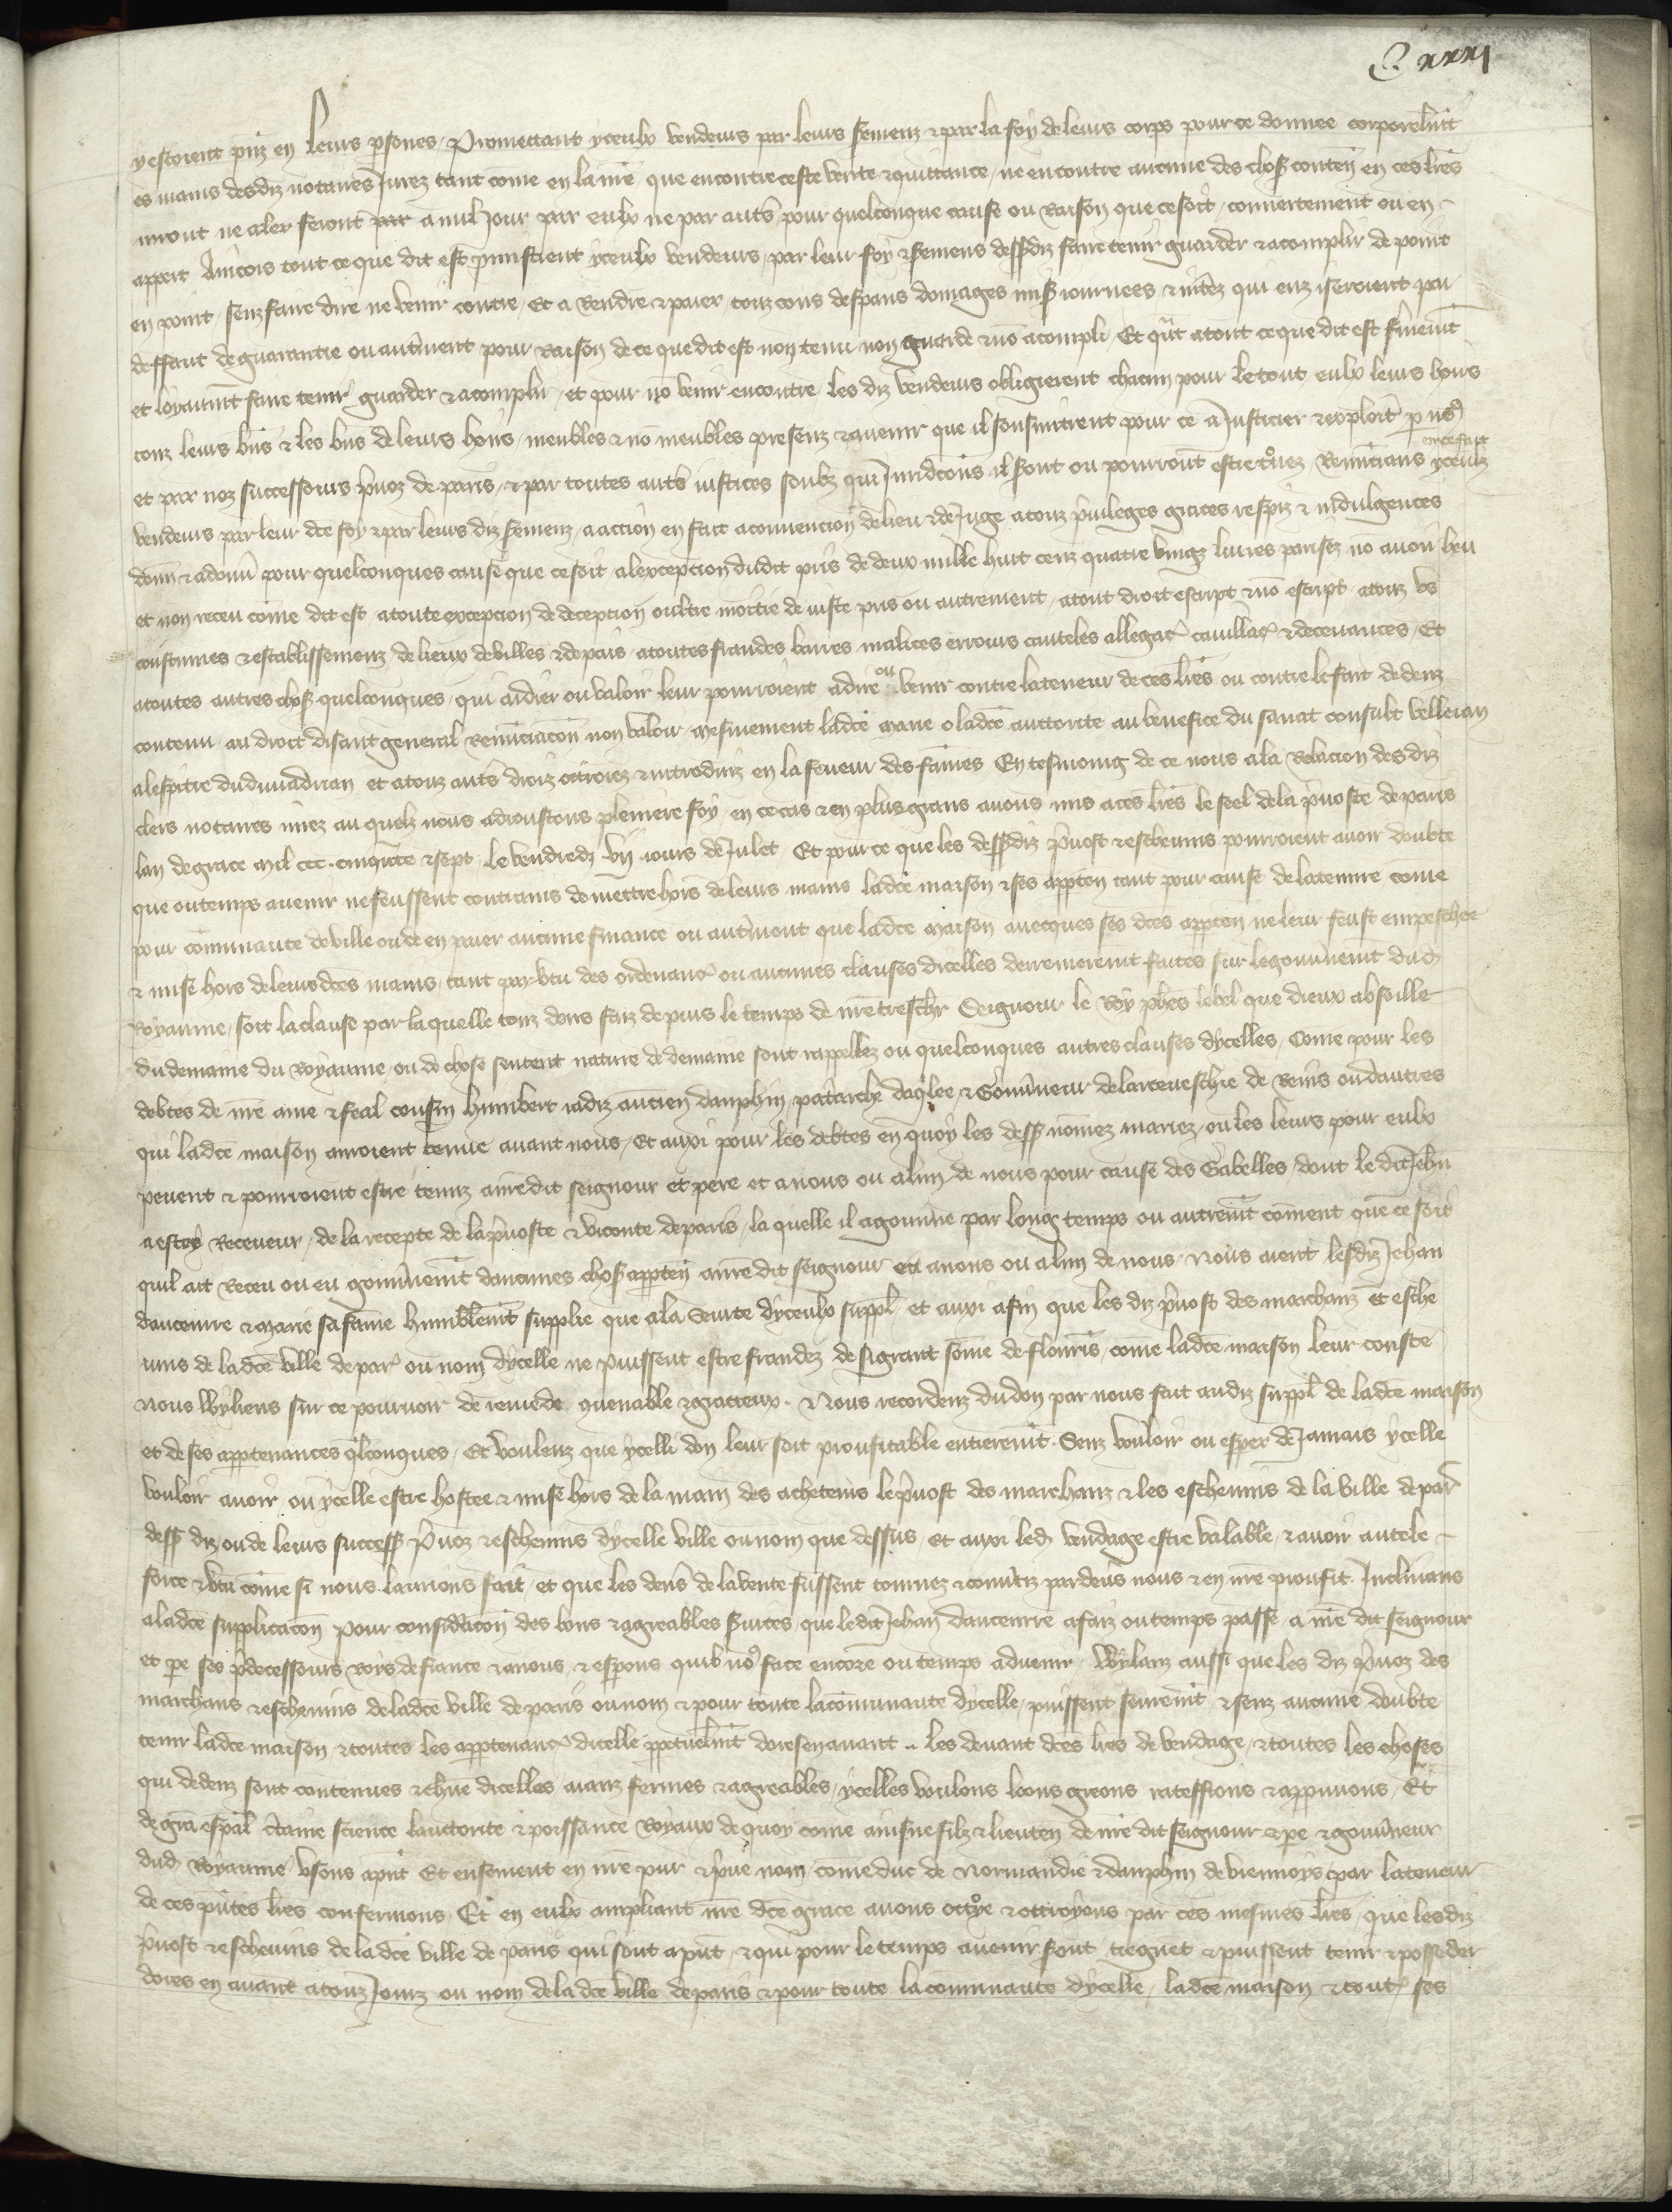 C xxxi
y estoient pns en leurs psones. Promettant yceulx vendeurs par leurs sermenz et par la foy de leurs corps pour ce donnee corporelmt
es mains desdiz notaires Jurez tant come en la me que encontre ceste vente et quittance, ne encontre aucune des chos conten en ces lres
iront ne aler feront par a nul Jour par eulx ne par auts pour quelconque cause ou Raison que ce soit, couvertement ou en
appert Ancois tout ce que dit est pmistrent yceulx vendeurs, par leur foy et sermens dessdiz faire tenir guarder et acomplir de point
en point, senz faire dire ne venir contre, Et a Rendre et paier touz cous despans domages mis iournees et intez qui enz iseroient par
deffaut de guarantie ou autment pour Raison de ce que dit est non tenu non guarde et no acompli. Et qut a tout ce que dit est fmemt
et loyaumt faire tenir guarder et acomplir, et pour no venir encontre les diz vendeurs obligierent chacun pour le tout eulx leurs hoirs
touz leurs bns et les bns de leurs hoirs, meubles et no meubles presenz et avenir que il sousmirent pour ce a Justicier et exploit p nos
et par noz successours pvoz de paris, et par toutes auts iustices soubz qui Juridcons il sont ou pourront estre touez Renuncians en ce fait yceulx
vendeurs par leur dce foy et par leurs diz sermenz, a action en fait a convencion de lieu et de Juge a touz privileges graces respiz et indulgences
donn et a donn pour quelconques cause que ce soit a lexception dudit pris de deux mille huit cenz quatre vingz livres parisiz no avoir heu
et non receu come dit est a toute exception de deception oultre moitie de iuste pris ou autrement, a tout droit escript et no escript, a touz us
coustumes et establissemenz de lieux de villes et de pais a toutes fraudes barres malices errours cauteles allegac cavillac et decevances, Et
a toutes autres chos quelconques qui aidier ou valoir leur pourroient a dire ou venir contre la teneur de ces lres ou contre le fait dedenz
contenu, au droit disant general Renunciacon non valoir, mesmement ladce marie o ladce auttorite au benefice du sanat consult velleian
a lespitre du divi adrian et a touz auts droiz ottroiez et introduiz en la faveur des fames En tesmoing de ce nous a la Relacion des diz
clers notaires iurez au quelz nous adioustons pleniere foy, en ce cas et en plus grans avons mis a ces lres le seel de la pvoste de paris
lan de grace mil ccc cinqute et sept le vendredi vij iours de Julet. Et pour ce que les dessdiz pvost et eschevins pourroient avoir doubte
que ou temps avenir ne feussent contrains de mettre hors de leurs mains ladce maison et ses appten tant pour cause de la tenure come
pour communaute de ville ou de en paier aucune finance ou autment que ladce maison avecques ses dces appten ne leur feust empeschee
et mise hors de leurs dces mains, tant par vtu des ordenanc ou aucunes clauses dicelles derreneremt faites sur le gouvnemt dud
Royaume, soit la clause par laquelle touz dons faiz depuis le temps de nre treschr Seignour le Roy phes le bel que dieux absoille
du demaine du Royaume ou de chose sentent nature de demaine sont rappellez ou quelconques autres clauses dycelles, Come pour les
debtes de nre ame et feal cousin humbert iadiz ancien dauphin patarche daqlee et Gouvneur de larceveschie de Reins ou dautres
qui ladce maison auroient tenue avant nous, Et auxi pour les debtes en quoy les dess nomez mariez ou les leurs pour eulx
pevent et pourroient estre tenuz a nre dit seignour et pere et a nous ou a lun de nous pour cause des Gabelles, dont le dit Jehn
a este Receveur, de la recepte de la pvoste et viconte de paris, la quelle il a gouvne par long temps ou autremt coment que ce soit
quil ait Receu ou eu gouvnemt daucunes chos appten a nre dit seignour et a nous ou a lun de nous, Nous aient lesdiz Jehan
daucenrre et marie sa fame humblemt supplie que a la Seurte dyceulx suppl et auxi afin que les diz pvost des marchanz et esche
vins de ladce ville de par ou nom dycelle ne puissent estre fraudez de si grant some de flourins, come ladce maison leur couste
Nous vuyliens sur ce pourveoir de remede gvenable et gracieux. Nous recordenz du don par nous fait audiz suppl de ladce maison
et de ses apptenances qlconques, Et voulenz que ycelli don leur soit proufitable entieremt. Senz vouloir ou esper de Jamais ycelle
vouloir avoir, ou ycelle estre hostee et mise hors de la main des acheteurs le pvost des marchanz et les eschevins de la ville de par
dess diz ou de leurs success pvoz et eschevins dycelle ville ou nom que dessus, et auxi led vendage estre valable, et avoir autele
force et vtu come si nous laurions fait, et que les dens de la vente fussent tournez et convtiz par devs nous et en nre proufit. Inclinans
a ladce supplicacon pour consideracon des bons et agreables svices, que ledit Jehan daucenrre a faiz ou temps passe a nre dit seignour
et pe ses pdecessours roys de france et a nous, et espons quil no face encore ou temps advenir, Vuylanz aussi que les diz pvoz des
marchans et eschevins de ladce ville de paris ou nom et pour toute la communaute dycelle, puissent seuremt et senz aucune doubte
tenir ladce maison et toutes les apptenanc dicelle ppetuelmt doresenavant .. les devant dces lres de vendage, et toutes les choses
qui dedenz sont contenues et chune dicelles aianz fermes et agreables, ycelles voulons loons greons rateffions et appuvons, Et
de gra espal ctaine science lauttorite et poissance Royaux de quoy come ainsne filz et lieuten de nre dit seignour et pe et gouvneur
dud Royaume usons a pnt Et ensement en nre pur et pve nom, come duc de Normandie et dauphin de viennoys par la teneur
de ces pntes lres confermons, Et en eulx ampliant nre dce grace avons octoye et ottroyons par ces mesmes lres, que lesdiz
pvost et eschevins de ladce ville de paris qui sont a pnt, et qui pour le temps avenir sont, tiegnet et puissent tenir et posseder
dores en avant a touz Jourz ou nom de ladce ville de paris et pour toute la communaute dycelle, ladce maison et tout ses